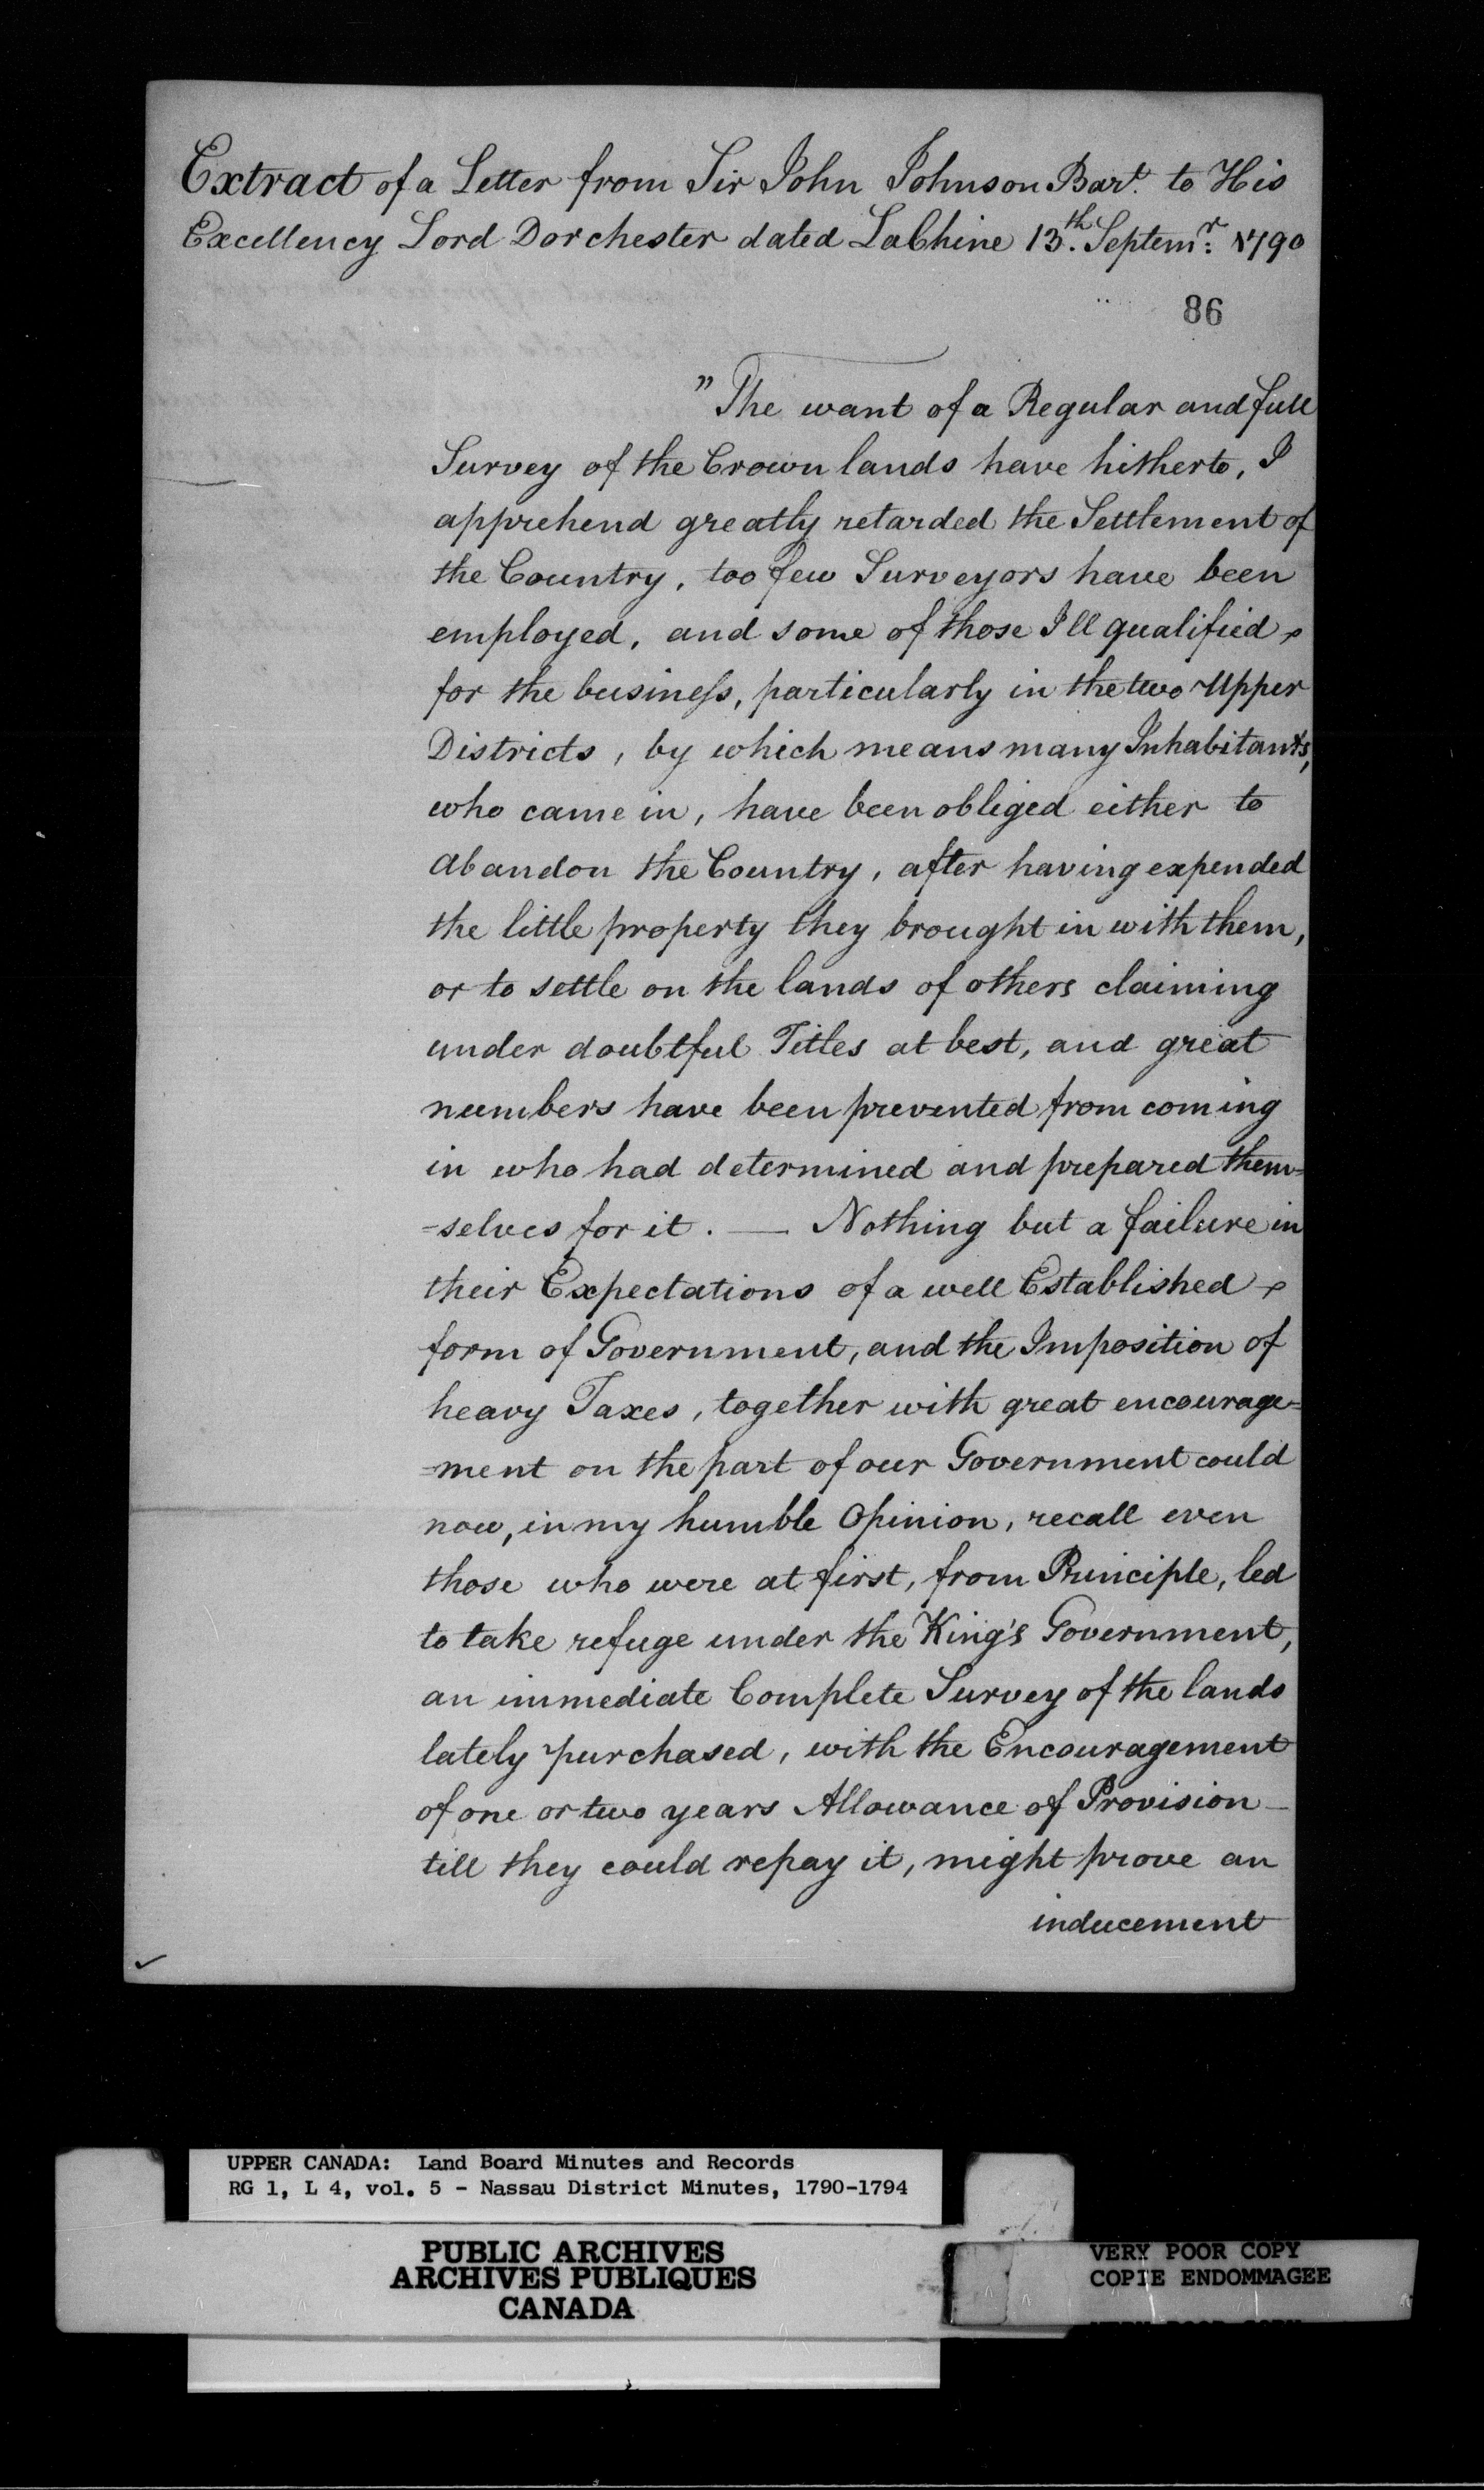 Extract of a Letter from Sir John Johnson Bar.t to His
Excellency Lord Dorchester dated LaChine 13.th Septem.r 1790
86
"The want of a Regular and full
Survey of the Crown lands have hitherto, I
apprehend greatly retarded the Settlement of
the Country, too few Surveyors have been
employed, and some of those Ill qualified
for the business, particularly in the two Upper
Districts, by which means many Inhabitants,
who came in, have been obliged either to
abandon the Country, after having expended
the little property they brought in with them,
or to settle on the lands of others claiming
under doubtful Titles at best, and great
numbers have been prevented from coming
in who had determined and prepared them=
=selves for it. — Nothing but a failure in
their Expectations of a well Established
form of Government, and the Imposition of
heavy Taxes, together with great encourage=
=ment on the part of our Government could
now, in my humble Opinion, recall even
those who were at first, from Principle, led
to take refuge under the King's Government,
an immediate Complete Survey of the lands
lately purchased, with the Encouragement
of one or two years Allowance of Provision —
till they could repay it, might prove an
inducement
UPPER CANADA: Land Board Minutes and Records
RG 1, L 4, vol. 5 - Nassau District Minutes, 1790-1794
PUBLIC ARCHIVES
ARCHIVES PUBLIQUES
CANADA
VERY POOR COPY
COPIE ENDOMMAGEE